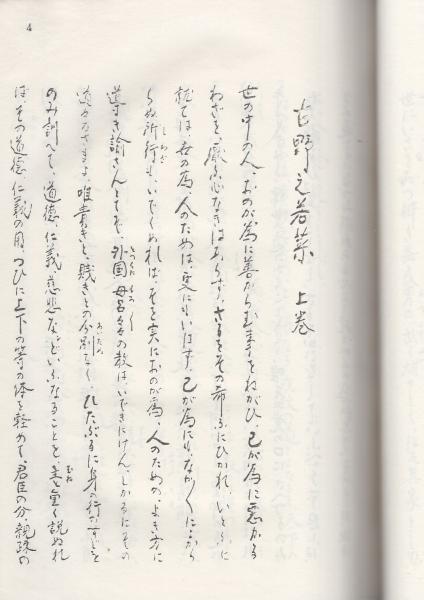 4
古野之若菜 上巻
世の中の人、おのが為に善からむ事をねがひ、己が為に悪かる
わざを、厭ふ心なきはあらず、さるをその希ふにひかれ、いとふに
就ては、吾の為、人のためは、更にもいはず、己が為にも、なか〱によから
ぬ所行も、いでくめれば、そを実におのが為、人のための、よき方に
導き諭さんとてぞ、外国
の教は、いできにけん、しかるにその
道々のさまよ、唯貴きと、賤きとの分別なく、ひたぶるに身の行のすぢを
のみ訓へて、道徳、仁義、慈悲などいふなることを、旨と説ぬれ
ば、その道徳、仁義の用、つひに上下の等の体を軽めて、君臣の分、親疎の